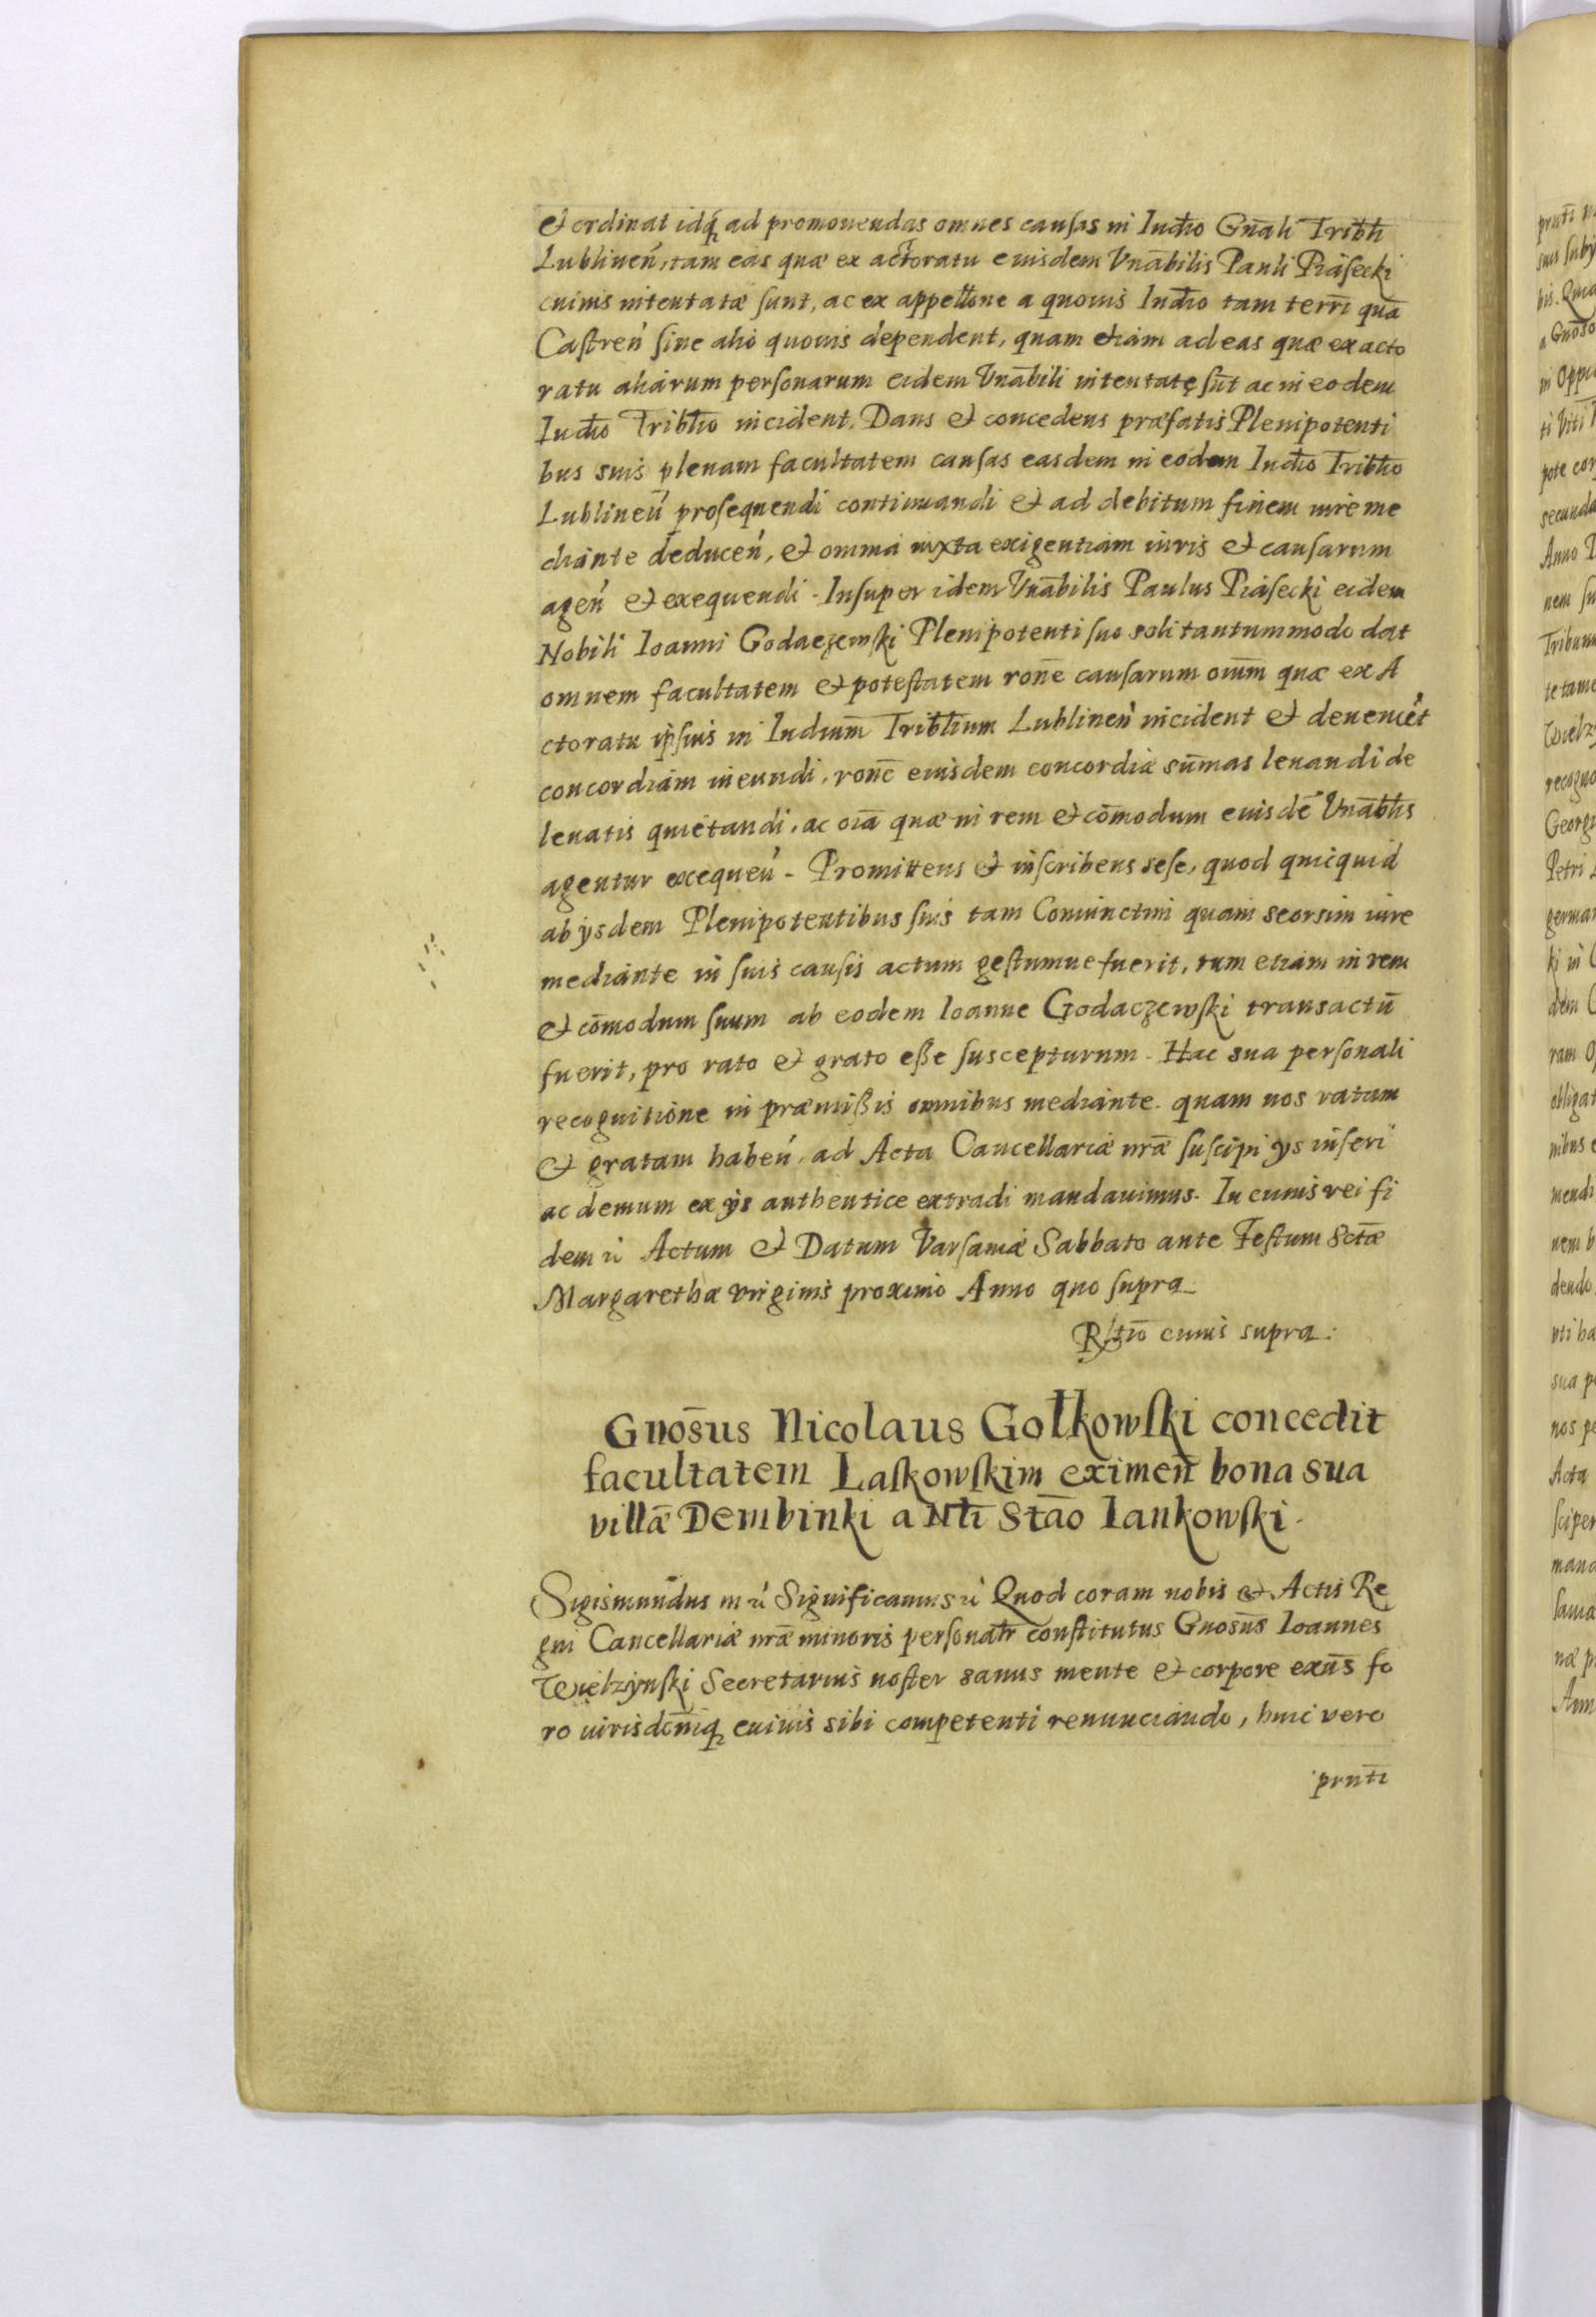 et ordinat idq́ꝫ ad promouendas omnes causas in Iudio Gnāli Tribli
Lublineń, tam eas quæ ex actoratu eiusdem Vnābilis Pauli Piasecki
cuiuis intentatæ sunt, ac ex appellone a quouis Indio tam terrī quā
Castreń siue alio quouis dependent, quam etiam ad eas quæ ex acto
ratu aliarum personarum eidem Vnābili intentatę sūt ac in eodem
Iudio Triblio incident. Dans et concedens præfatis Plenipotenti
bus suis plenam facultatem causas easdem in eodem Iudio Triblio
Lublineń prosequendi continuandi et ad debitum finem iure me
diante deduceń, et omnia iuxta exigentiam iuris et causarum
ageń et exequendi. Insuper idem Vnābilis Paulus Piasecki eidem
Nobili Ioanni Godaczewski Plenipotenti suo soli tantummodo dat
omnem facultatem et potestatem ronē causarum oīum quæ ex A
ctoratu ipsius in Iudium Triblium Lublineń incident et deueniēt
concordiam ineundi, ronē eiusdem concordiæ sūmas leuandi de
leuatis quietandi, ac oīa quæ in rem et cōmodum eiusdē Vnāblis
agentur exequeń. Promittens et inscribens sese, quod quicquid
ab ijsdem Plenipotentibus suis tam Coniunctim quam seorsim iure
mediante in suis causis actum gestumue fuerit, tum etiam in rem
et cōmodum suum ab eodem Ioanne Godaczewski transactū
fuerit, pro rato et grato eße suscepturum. Hac sua personali
recognitione in præmißis omnibus mediante. quam nos ratam
et gratam habeń, ad Acta Cancellariæ nræ suscipi ijs inseri
ac demum ex ijs authentice extradi mandauimus. In cuius rei fi
dem ń Actum et Datum Varsauiæ Sabbato ante Festum Sctæ
Margarethæ virginis proximo Anno quo supra
Rltio cuius supra.
Gnosus Nicolaus Gołkowski concedit
facultatem Laskowskim eximeń bona sua
villā Dembinki a Nli Stāo Iankowski.
Sigismundus III ń Significamus ń Quod coram nobis et Actis Re
gni Cancellariæ nræ minoris personalr constitutus Gnosus Ioannes
Wielzynski Secretarius noster sanus mente et corpore exūs fo
ro iurisdōniq́ꝫ cuiuis sibi competenti renunciando, huic vero
prntī